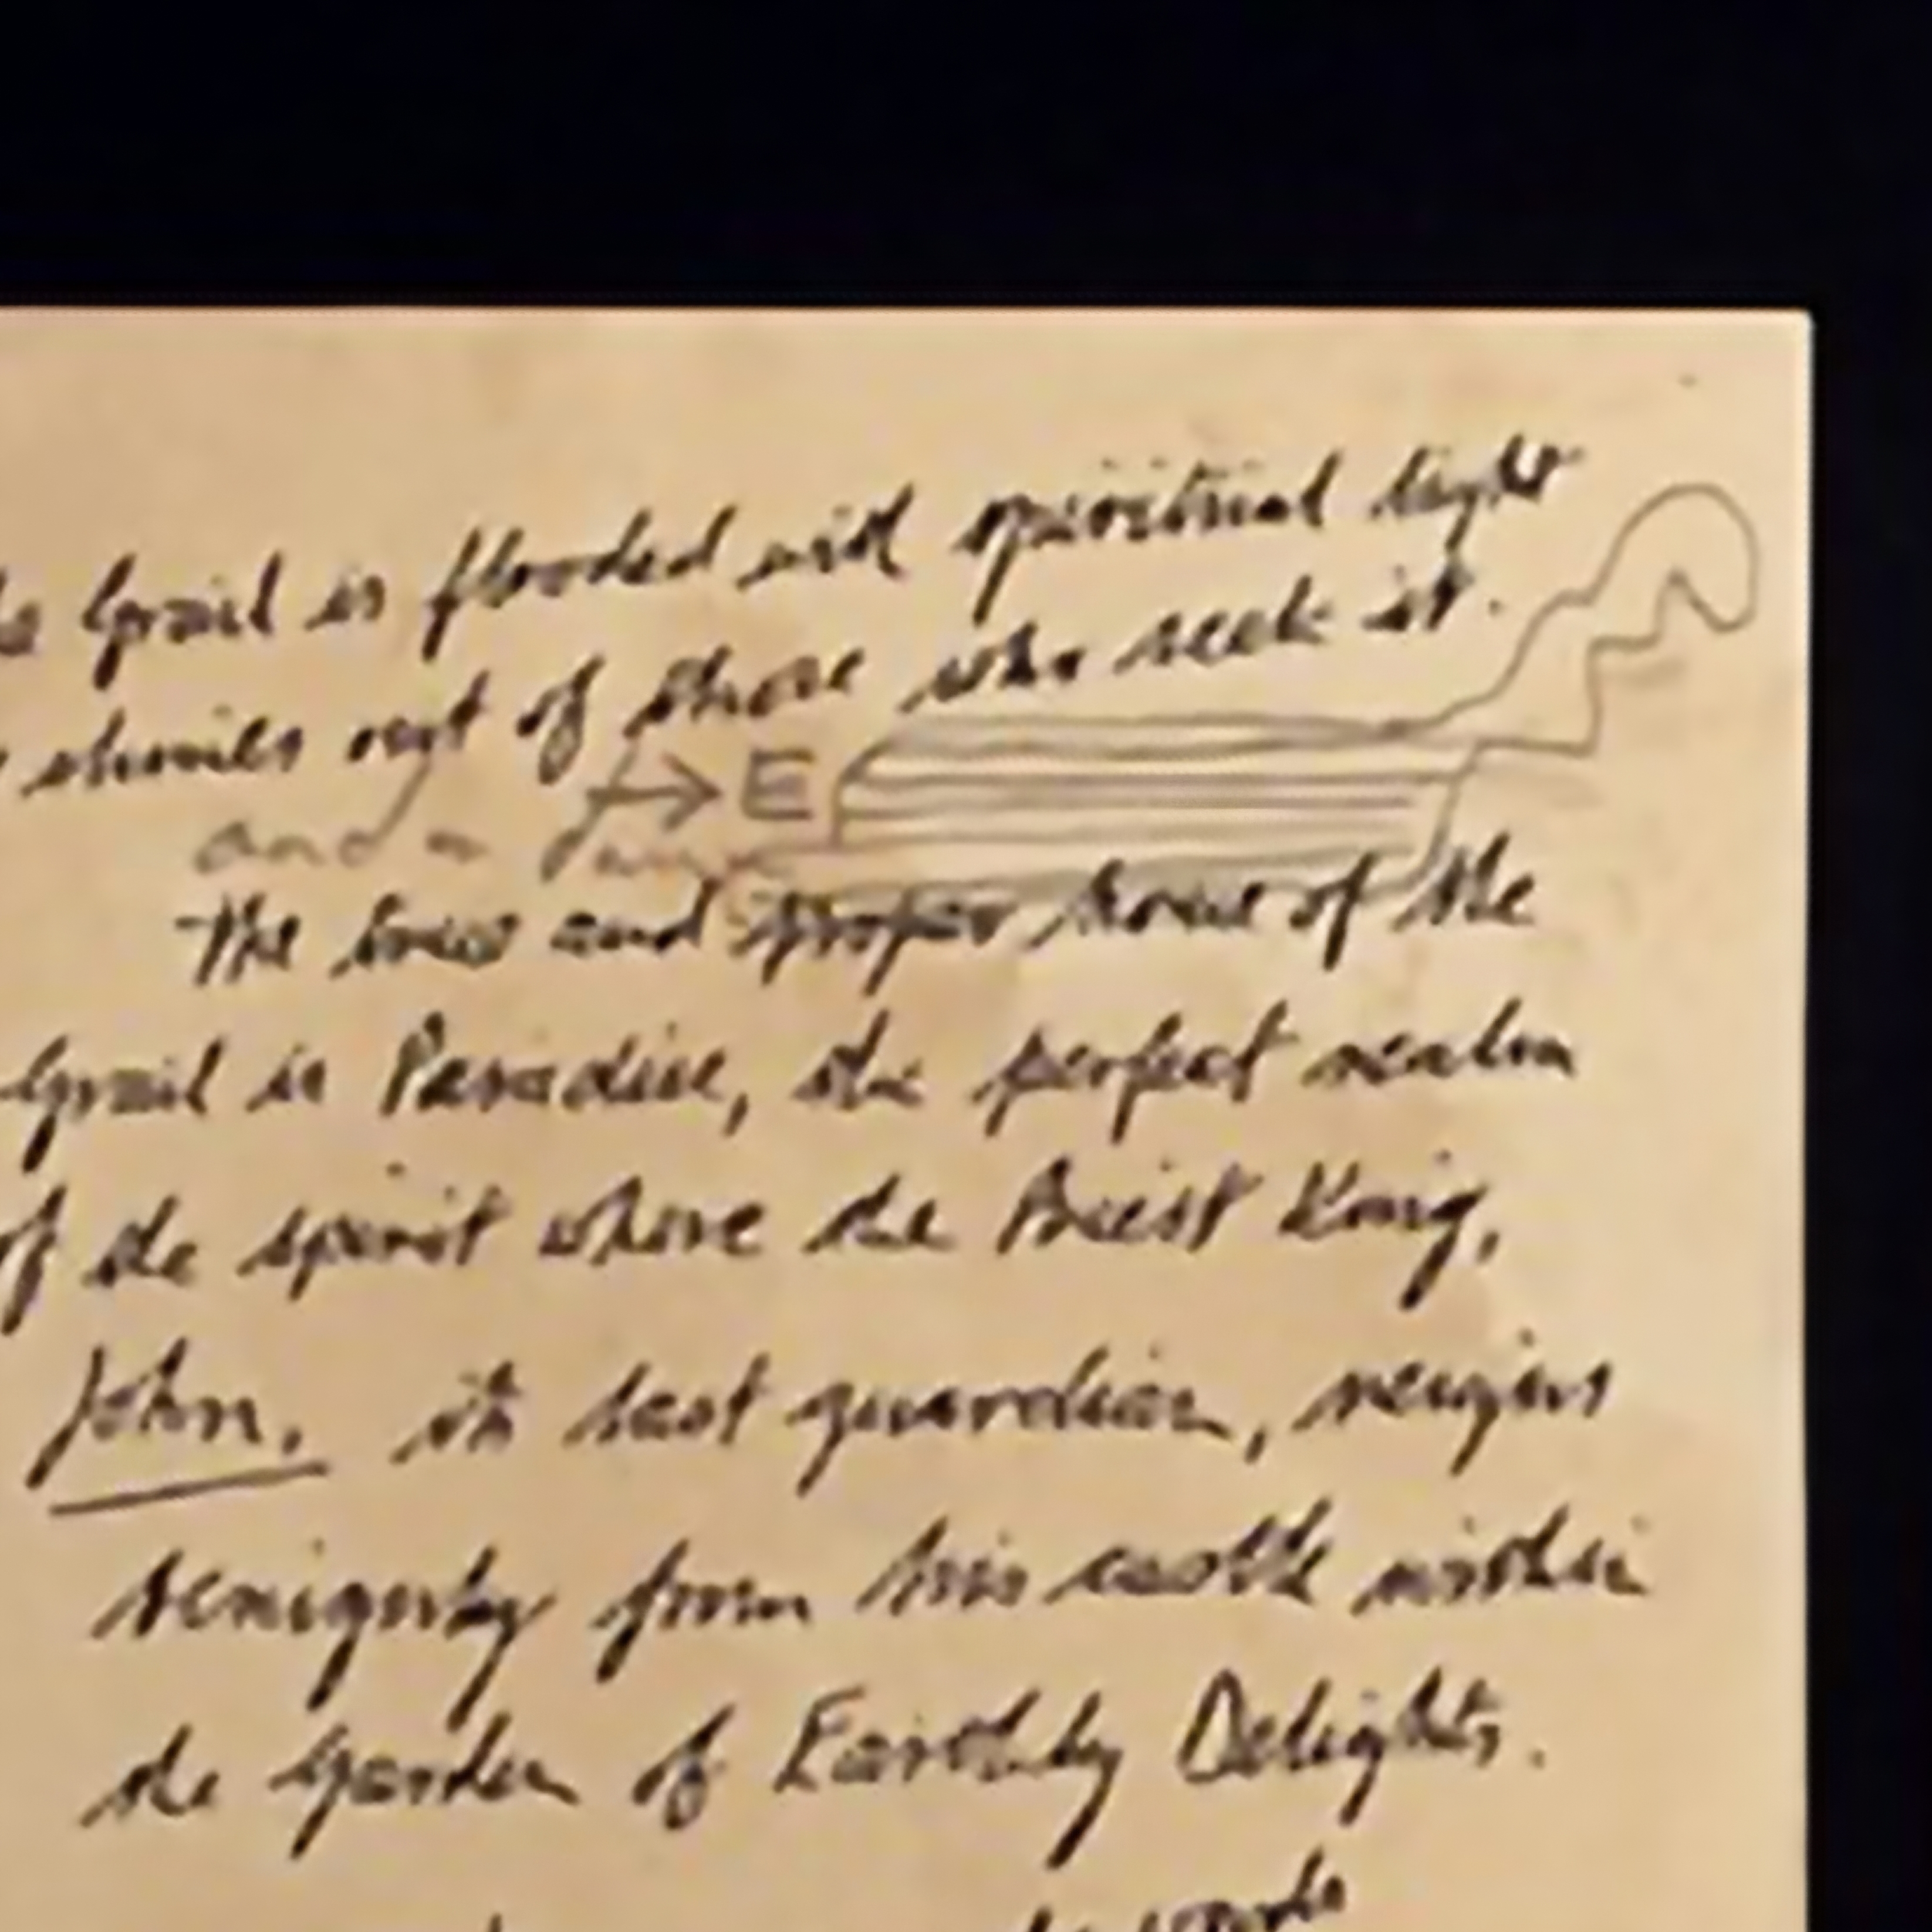 Grail is flooded with spiritual light
shines out of those who seek it.
→ E
and a
The true and proper home of the
Grail is Paradise, the perfect realm
of the spirit where the Priest King,
John, its last guardian, reigns
benignly from his castle within
the Garden of Earthly Delights.